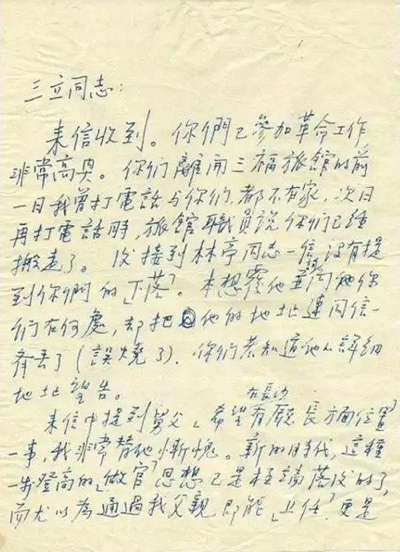 三立同志：
来信收到。你們已參加革命工作
非常高興。你们離開三福旅館的前
一日我曾打電話与你们，都不在家，次日
再打電話时，旅館職員説你们已經
搬走了。後接到林亭同志一信，没有提
到你們的「下落」。本想覆他並询问他你
们在何處，却把他的地址連同信一
齊丢了（誤燒了）。你们若知道他的詳細
地址望告。
来信中提到舅父「希望在長沙有厰長方面位置」
一事，我非常替他慚愧。新的时代，這種
一步登高的「做官」思想已是極端落後的了，
而尤以為通過我父親即能「上任」，更是